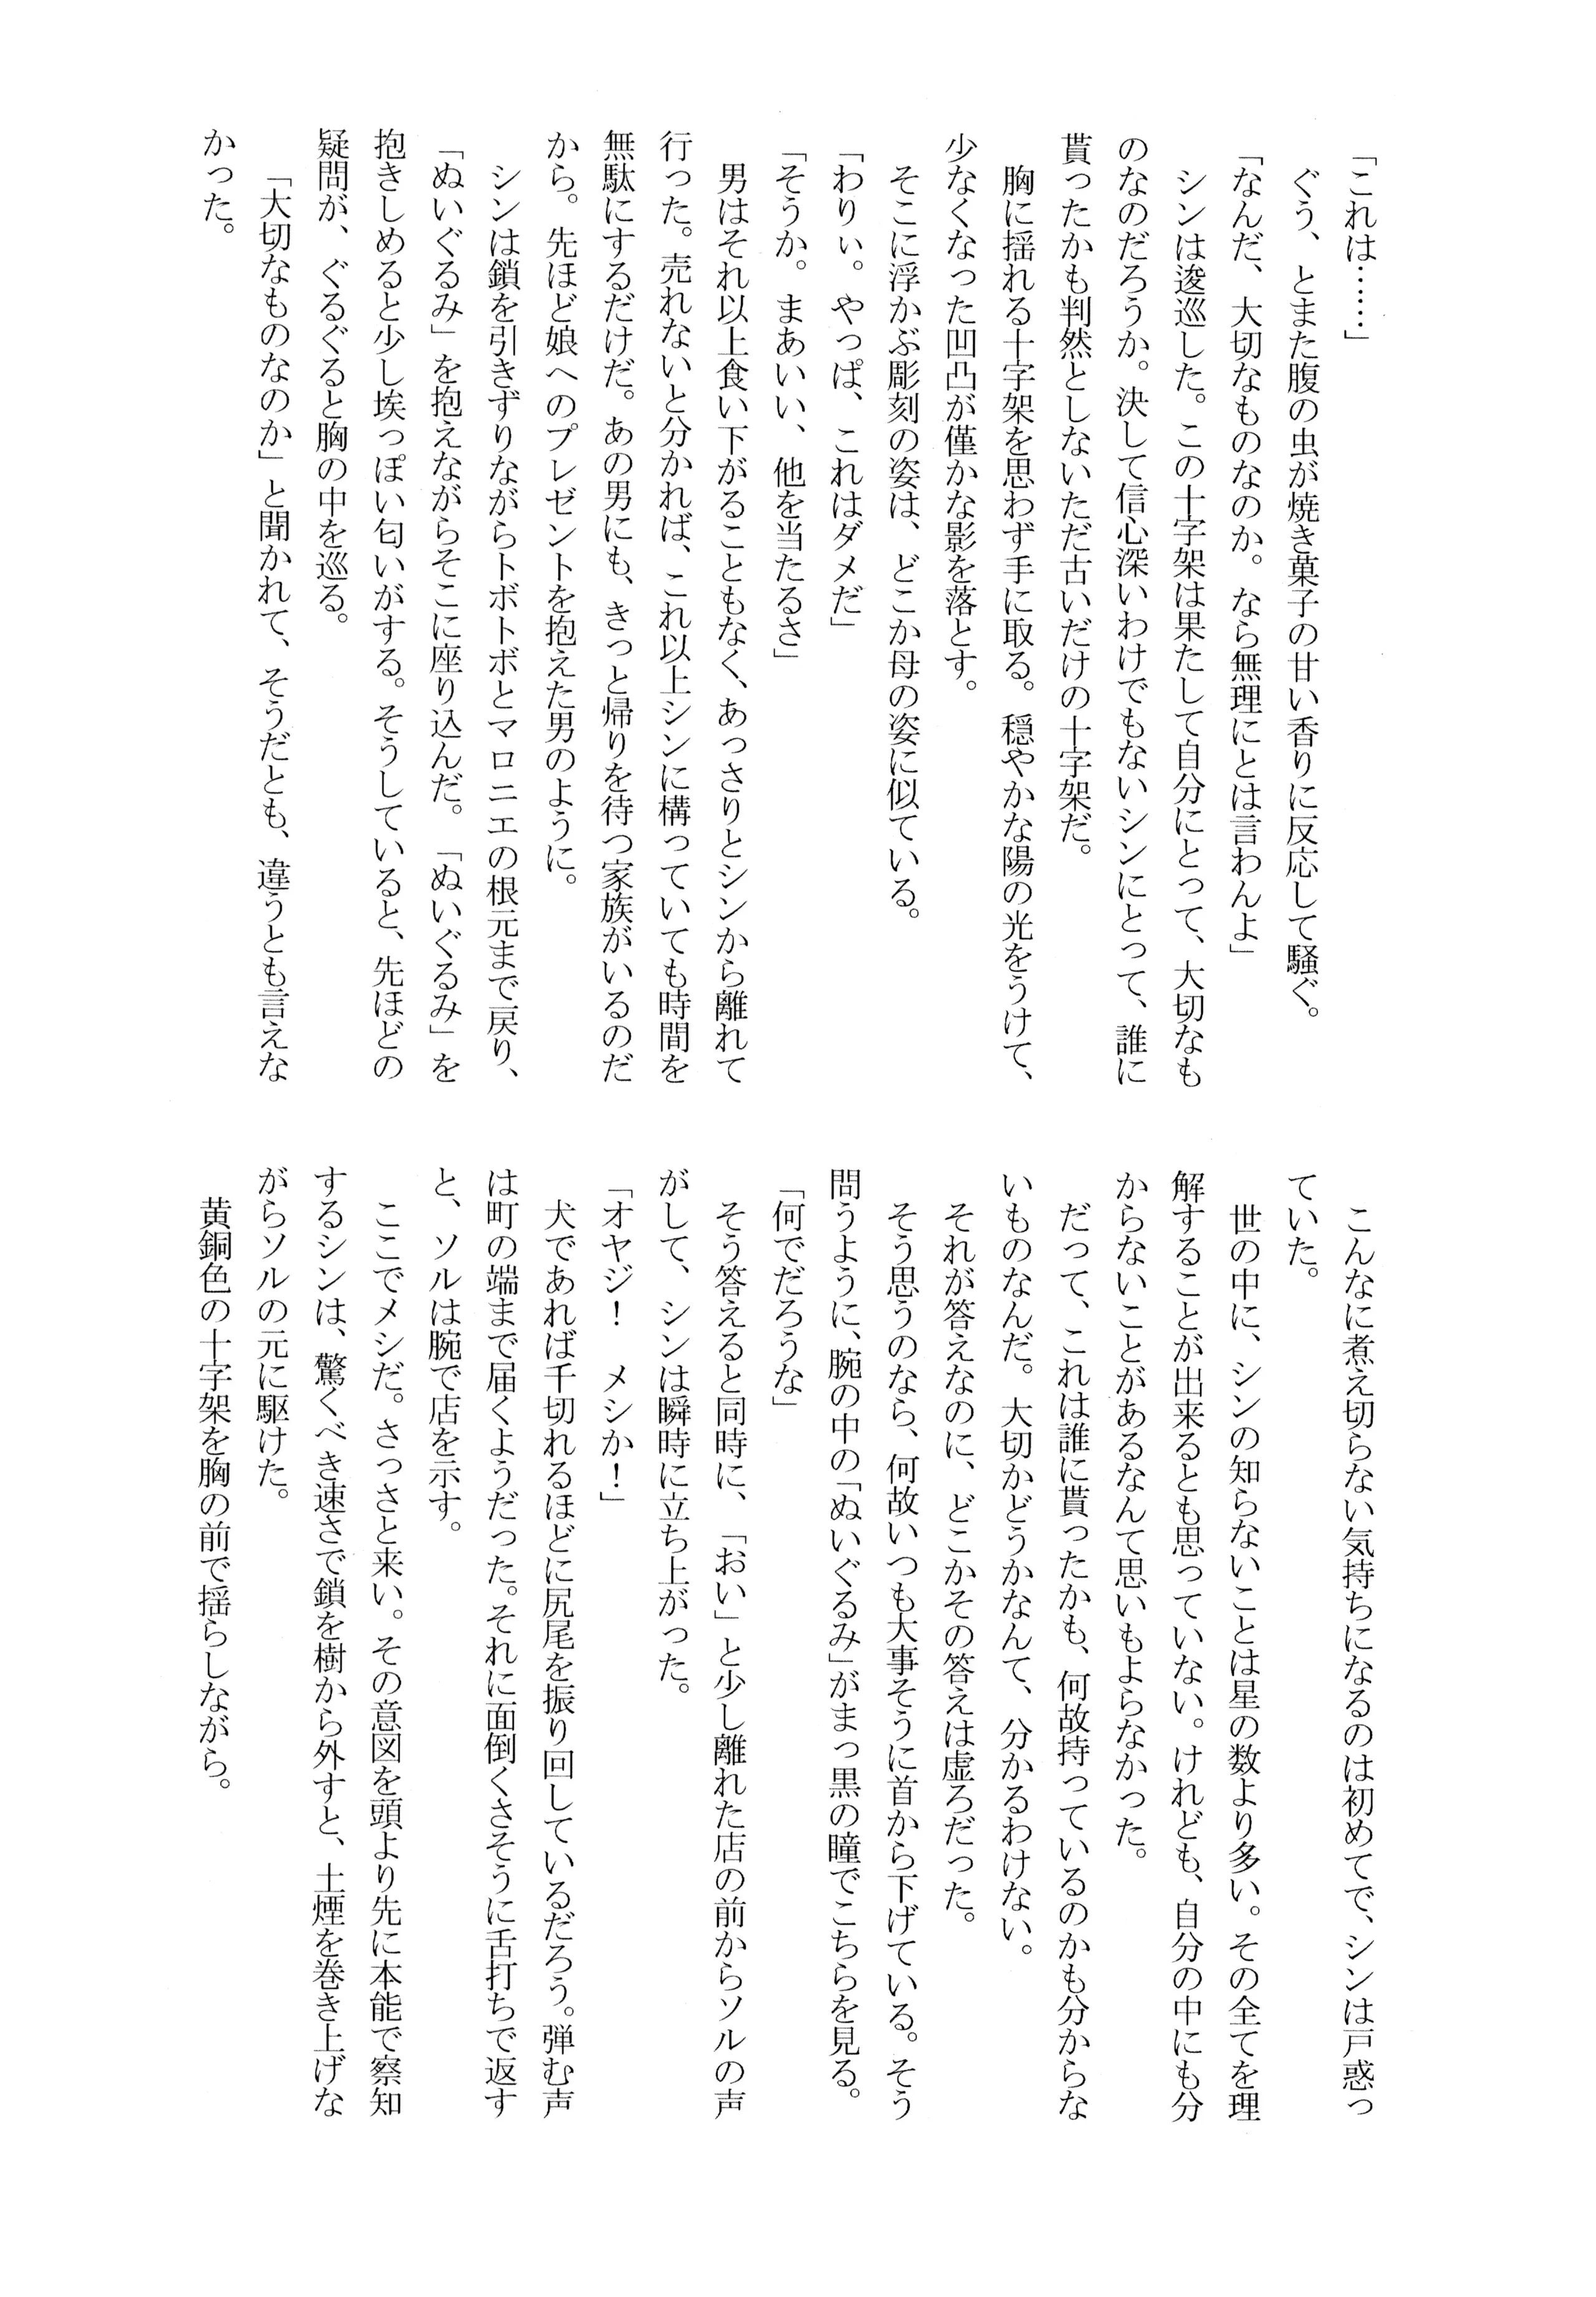 「これは……」
　ぐう、とまた腹の虫が焼き菓子の甘い香りに反応して騒ぐ。
「なんだ、大切なものなのか。なら無理にとは言わんよ」
　シンは逡巡した。この十字架は果たして自分にとって、大切なも
のなのだろうか。決して信心深いわけでもないシンにとって、誰に
貰ったかも判然としないただ古いだけの十字架だ。
　胸に揺れる十字架を思わず手に取る。穏やかな陽の光をうけて、
少なくなった凹凸が僅かな影を落とす。
　そこに浮かぶ彫刻の姿は、どこか母の姿に似ている。
「わりぃ。やっぱ、これはダメだ」
「そうか。まあいい、他を当たるさ」
　男はそれ以上食い下がることもなく、あっさりとシンから離れて
行った。売れないと分かれば、これ以上シンに構っていても時間を
無駄にするだけだ。あの男にも、きっと帰りを待つ家族がいるのだ
から。先ほど娘へのプレゼントを抱えた男のように。
　シンは鎖を引きずりながらトボトボとマロニエの根元まで戻り、
「ぬいぐるみ」を抱えながらそこに座り込んだ。「ぬいぐるみ」を
抱きしめると少し埃っぽい匂いがする。そうしていると、先ほどの
疑問が、ぐるぐると胸の中を巡る。
　「大切なものなのか」と聞かれて、そうだとも、違うとも言えな
かった。
　こんなに煮え切らない気持ちになるのは初めてで、シンは戸惑っ
ていた。
　世の中に、シンの知らないことは星の数より多い。その全てを理
解することが出来るとも思っていない。けれども、自分の中にも分
からないことがあるなんて思いもよらなかった。
　だって、これは誰に貰ったかも、何故持っているのかも分からな
いものなんだ。大切かどうかなんて、分かるわけない。
　それが答えなのに、どこかその答えは虚ろだった。
　そう思うのなら、何故いつも大事そうに首から下げている。そう
問うように、腕の中の「ぬいぐるみ」がまっ黒の瞳でこちらを見る。
「何でだろうな」
　そう答えると同時に、「おい」と少し離れた店の前からソルの声
がして、シンは瞬時に立ち上がった。
「オヤジ！　メシか！」
　犬であれば千切れるほどに尻尾を振り回しているだろう。弾む声
は町の端まで届くようだった。それに面倒くさそうに舌打ちで返す
と、ソルは腕で店を示す。
　ここでメシだ。さっさと来い。その意図を頭より先に本能で察知
するシンは、驚くべき速さで鎖を樹から外すと、土煙を巻き上げな
がらソルの元に駆けた。
　黄銅色の十字架を胸の前で揺らしながら。